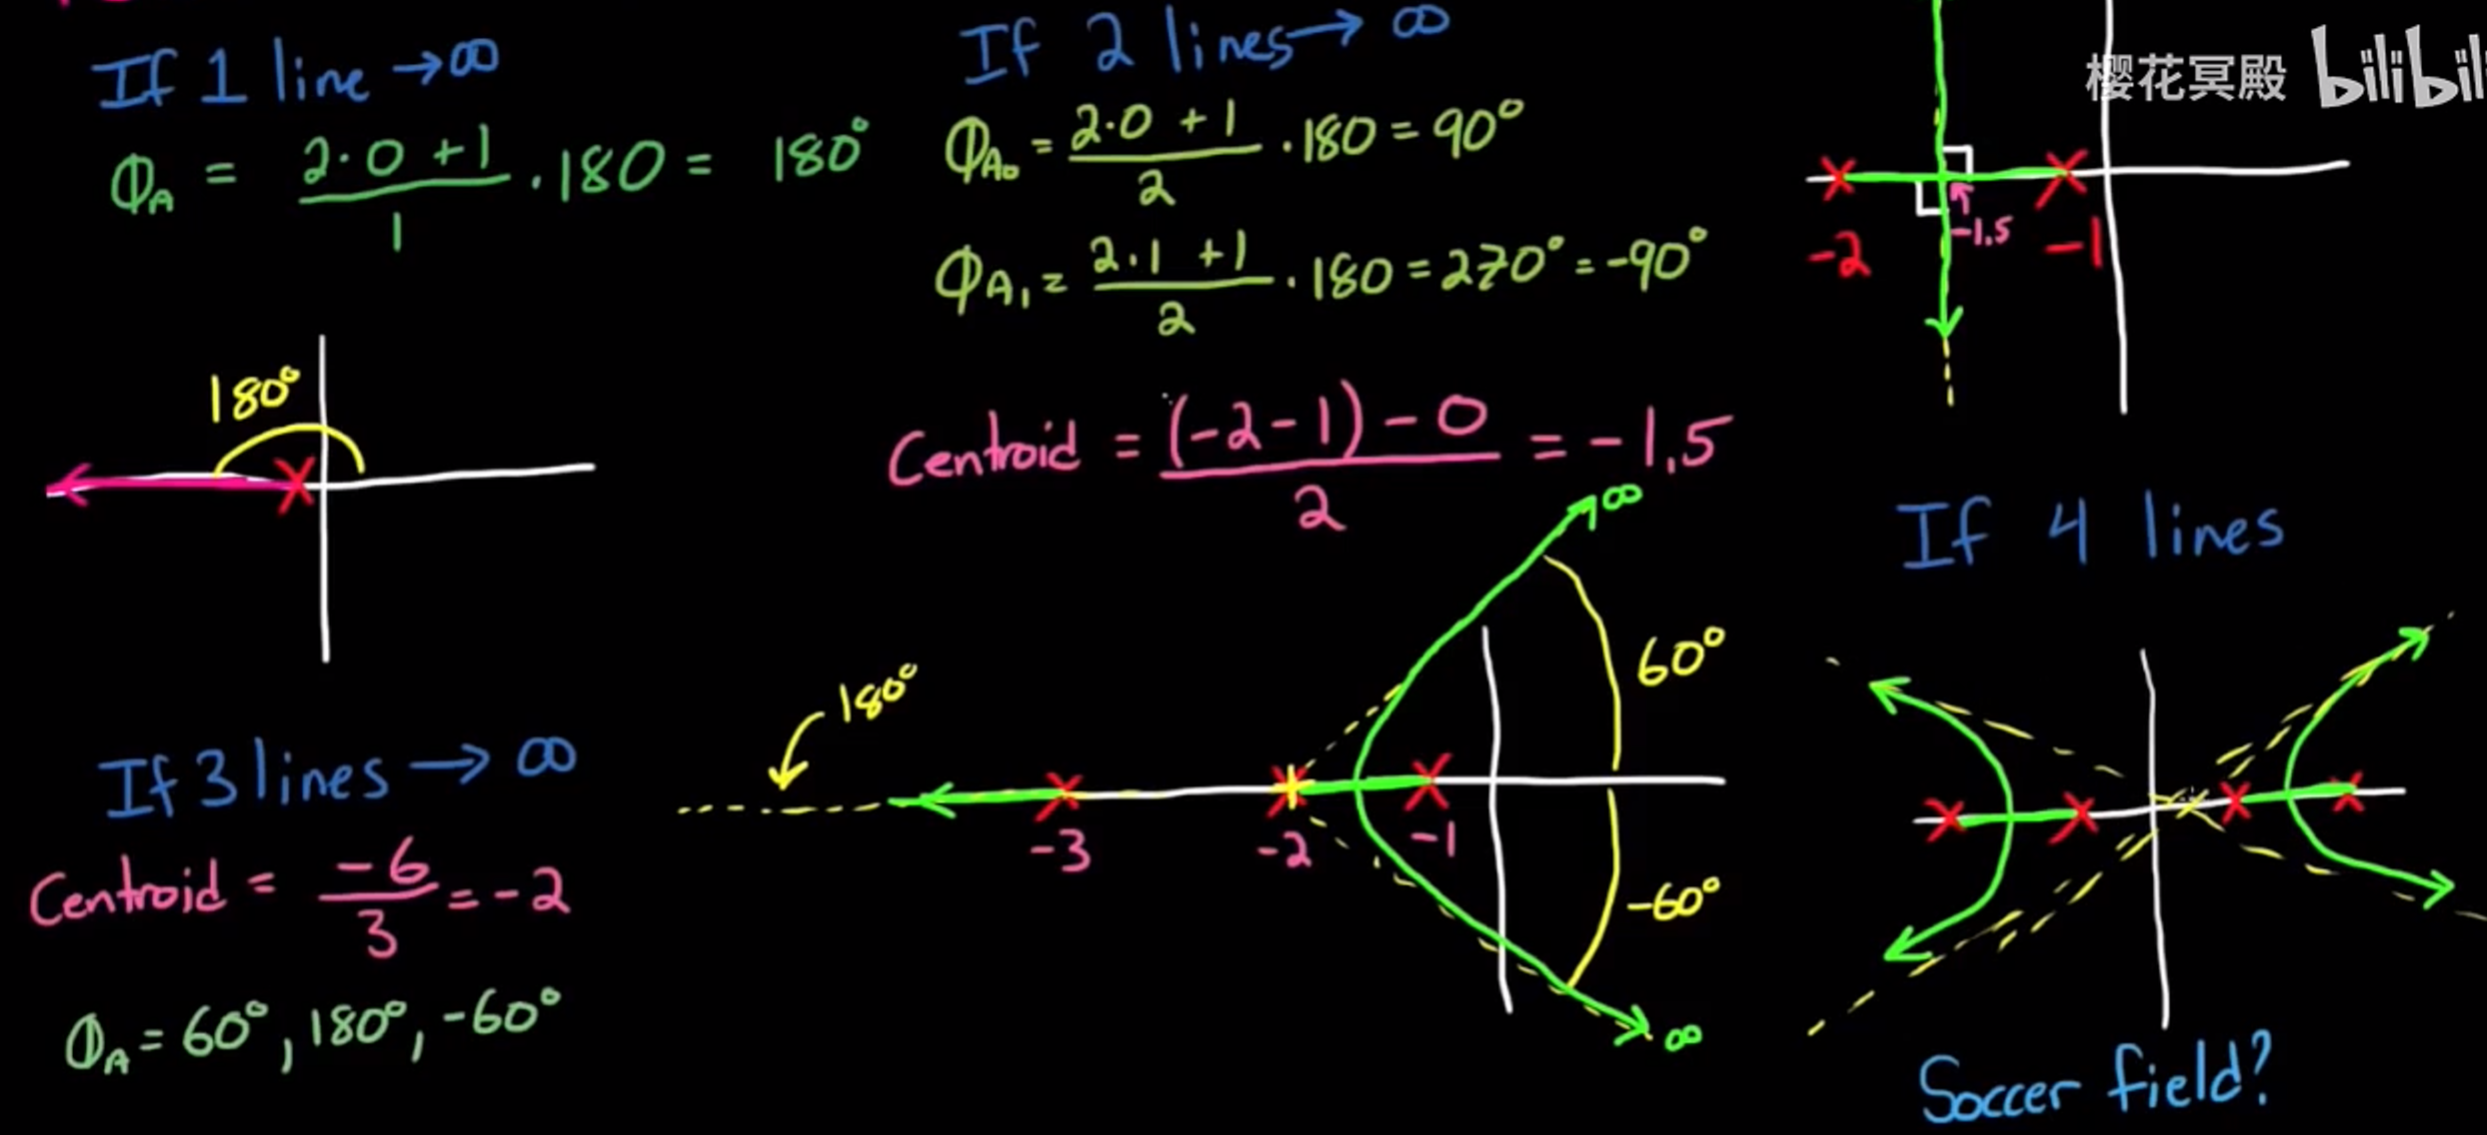 If 1 line → ∞
Φ_A = (2·0 + 1)/1 · 180 = 180°
180°
If 2 lines → ∞
Φ_A₀ = (2·0 + 1)/2 · 180 = 90°
Φ_A₁ = (2·1 + 1)/2 · 180 = 270° = -90°
Centroid = ((-2-1) - 0)/2 = -1.5
樱花冥殿 bilibili
-2
-1.5
-1
If 3 lines → ∞
Centroid = -6/3 = -2
Φ_A = 60°, 180°, -60°
∞
60°
180°
-3
-2
-1
-60°
∞
If 4 lines
Soccer field?